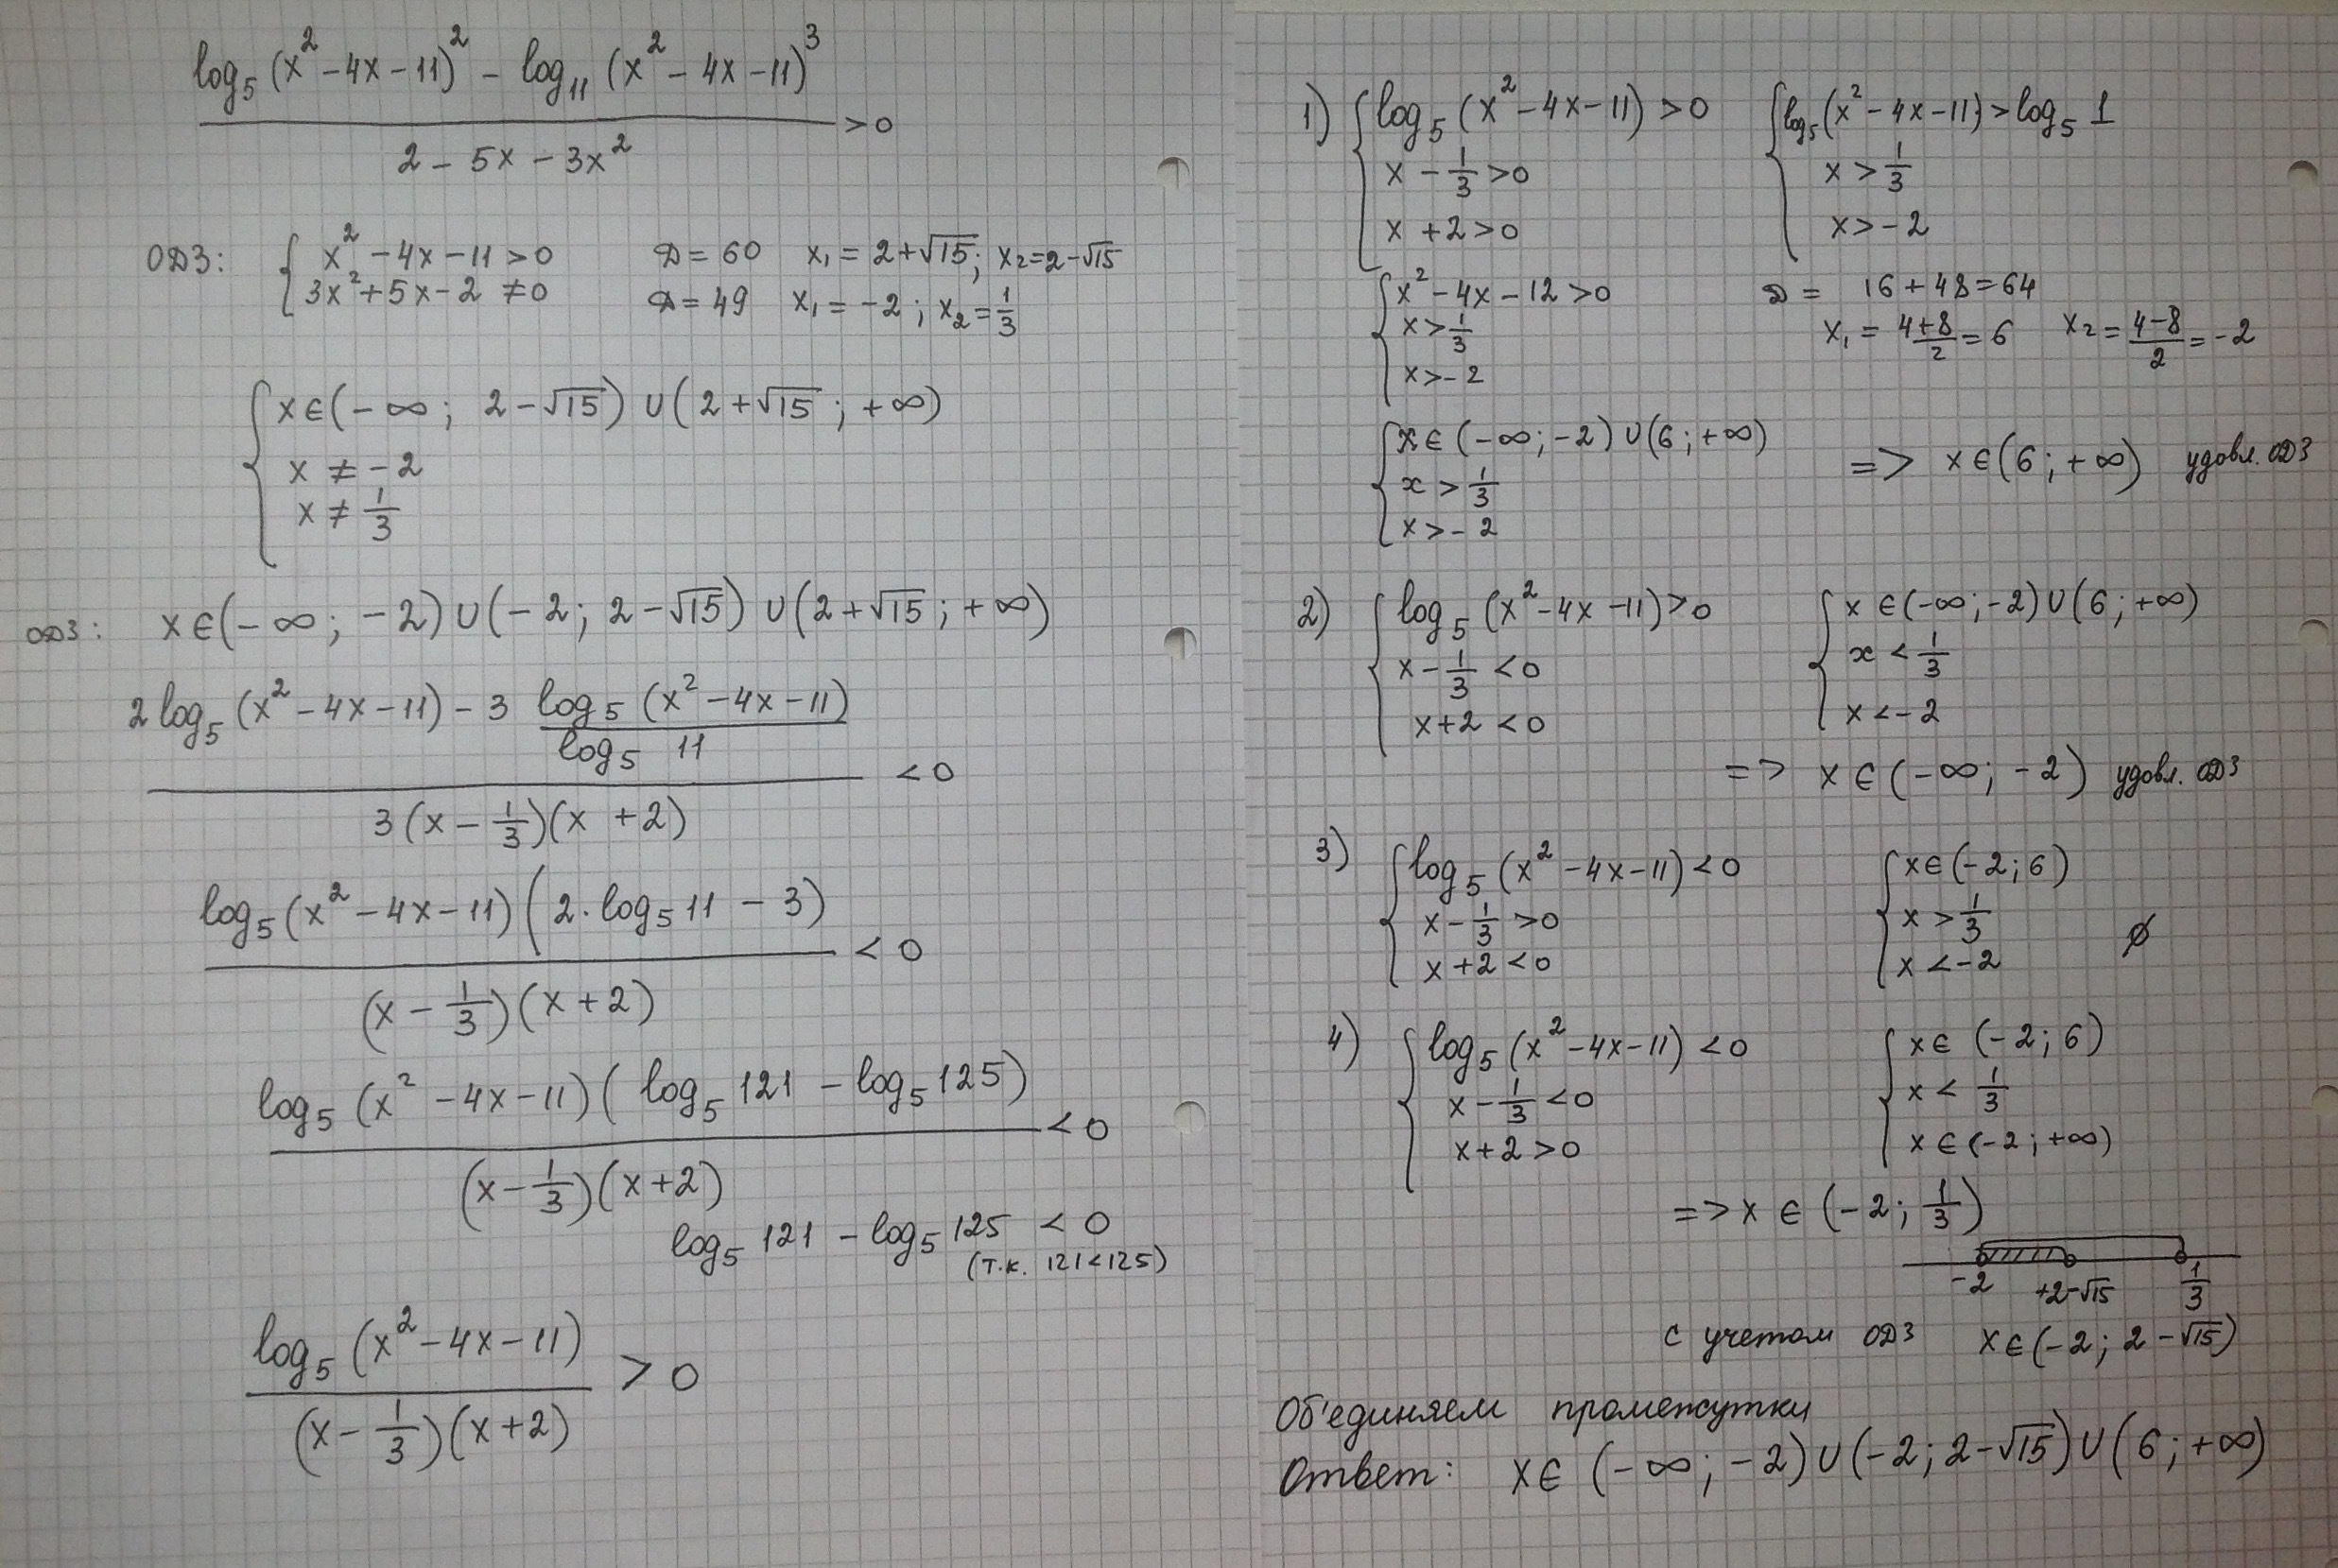 log₅(x² - 4x - 11)² - log₁₁(x² - 4x - 11)³
2 - 5x - 3x²
> 0
ОДЗ: { x² - 4x - 11 > 0   D = 60   x₁ = 2 + √15; x₂ = 2 - √15
3x² + 5x - 2 ≠ 0   D = 49   x₁ = -2; x₂ = 1/3
{ x ∈ (-∞; 2 - √15) ∪ (2 + √15; +∞)
x ≠ -2
x ≠ 1/3
ОДЗ: x ∈ (-∞; -2) ∪ (-2; 2 - √15) ∪ (2 + √15; +∞)
2 log₅(x² - 4x - 11) - 3 log₅(x² - 4x - 11)
log₅ 11
< 0
3(x - 1/3)(x + 2)
log₅(x² - 4x - 11)(2·log₅11 - 3)
< 0
(x - 1/3)(x + 2)
log₅(x² - 4x - 11)(log₅121 - log₅125)
< 0
(x - 1/3)(x + 2)
log₅121 - log₅125 < 0
(т.к. 121 < 125)
log₅(x² - 4x - 11)
> 0
(x - 1/3)(x + 2)
1) { log₅(x² - 4x - 11) > 0   { log₅(x² - 4x - 11) > log₅ 1
x - 1/3 > 0   x > 1/3
x + 2 > 0   x > -2
{ x² - 4x - 12 > 0   D = 16 + 48 = 64
x > 1/3   x₁ = (4+8)/2 = 6   x₂ = (4-8)/2 = -2
x > -2
{ x ∈ (-∞; -2) ∪ (6; +∞)
x > 1/3   => x ∈ (6; +∞) удовл. ОДЗ
x > -2
2) { log₅(x² - 4x - 11) > 0   { x ∈ (-∞; -2) ∪ (6; +∞)
x - 1/3 < 0   x < 1/3
x + 2 < 0   x < -2
=> x ∈ (-∞; -2) удовл. ОДЗ
3) { log₅(x² - 4x - 11) < 0   { x ∈ (-2; 6)
x - 1/3 > 0   x > 1/3   ∅
x + 2 < 0   x < -2
4) { log₅(x² - 4x - 11) < 0   { x ∈ (-2; 6)
x - 1/3 < 0   x < 1/3
x + 2 > 0   x ∈ (-2; +∞)
=> x ∈ (-2; 1/3)
-2   +2-√15   1/3
с учетом ОДЗ   x ∈ (-2; 2 - √15)
Об'единяем промежутки
Ответ: x ∈ (-∞; -2) ∪ (-2; 2 - √15) ∪ (6; +∞)